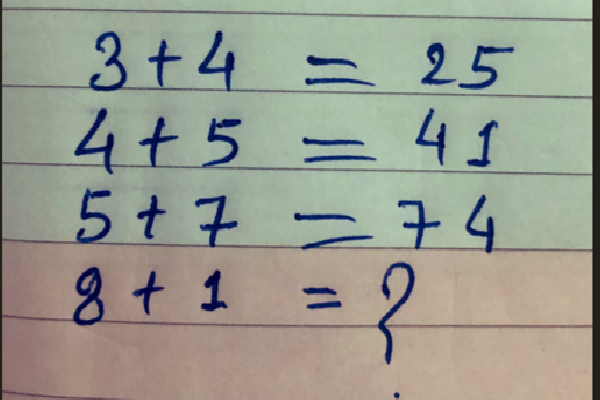 3 + 4 = 25
4 + 5 = 41
5 + 7 = 74
8 + 1 = ?